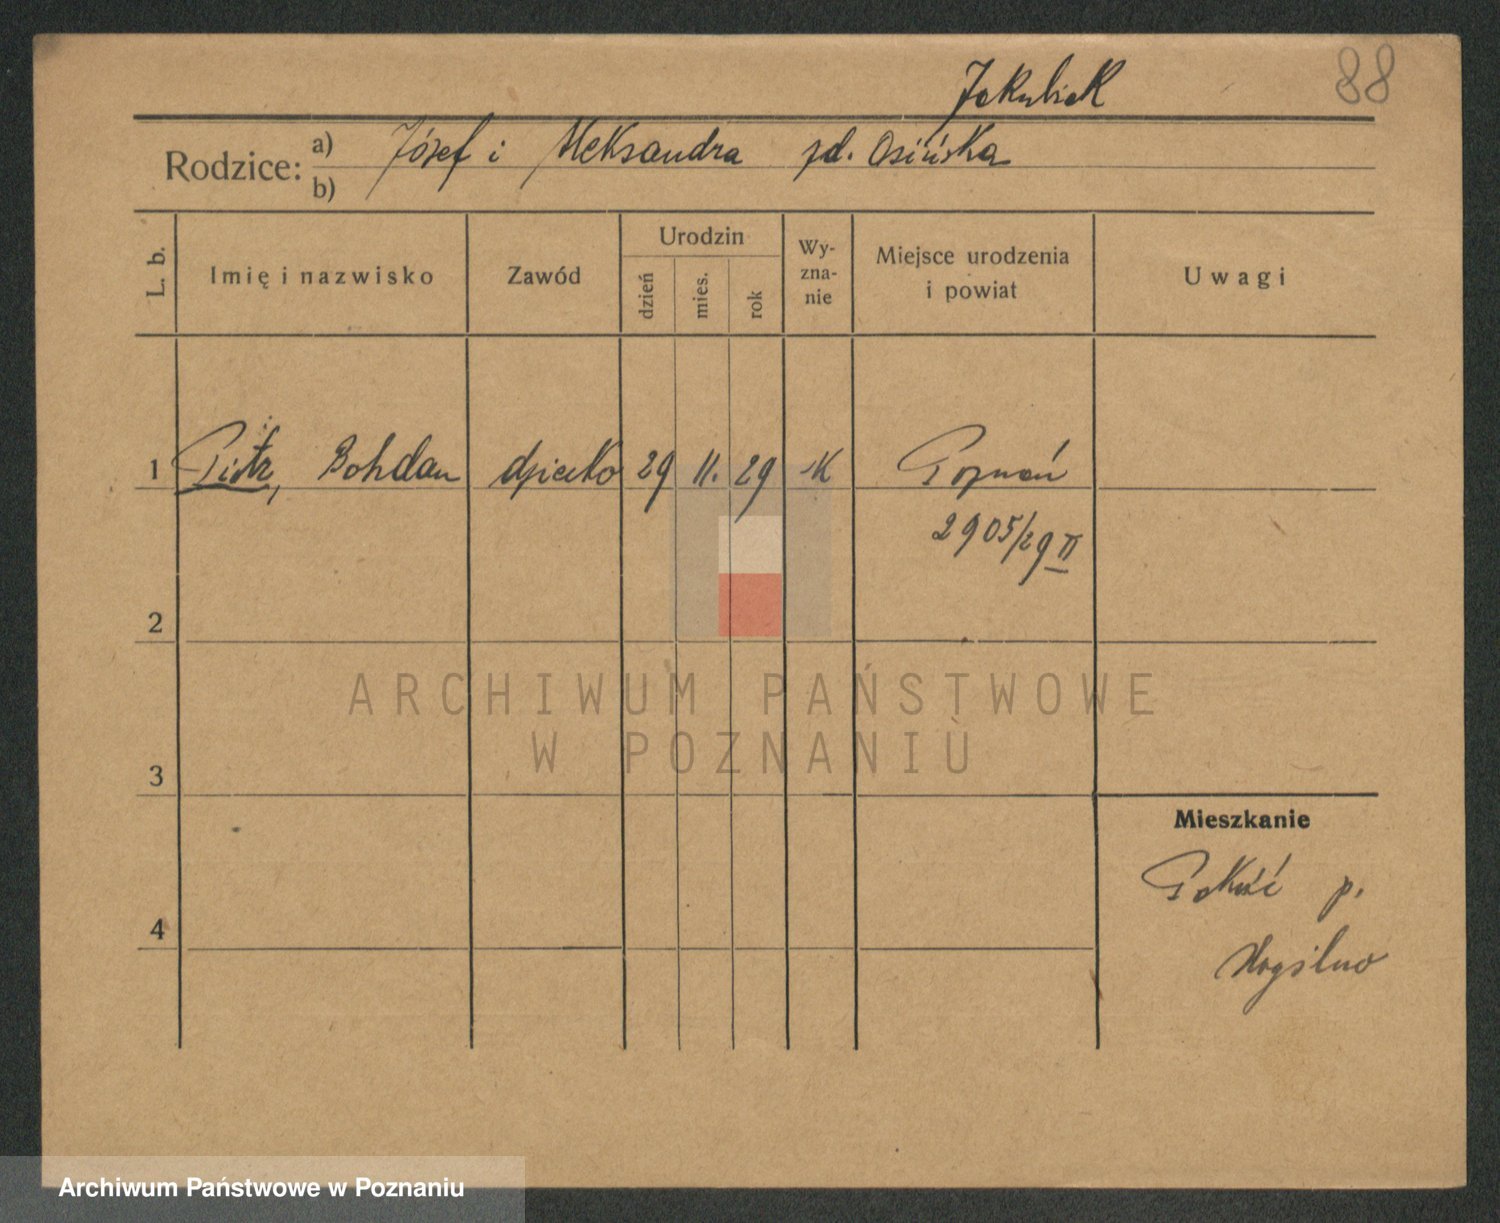 88
Jakubiak
Rodzice: a) Józef i Aleksandra zd. Osińska
b)
L. b. Imię i nazwisko Zawód Urodzin dzień mies. rok Wy-zna-nie Miejsce urodzenia i powiat Uwagi
1 Piotr, Bohdan dziecko 29 11. 29 rk Poznań
2905/29 II
2
ARCHIWUM PAŃSTWOWE
W POZNANIU
3
Mieszkanie
Pakość p.
Mogilno
4
Archiwum Państwowe w Poznaniu